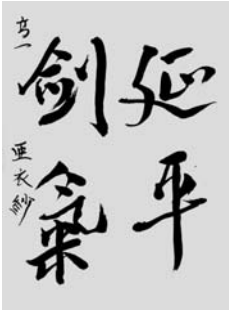 延平
剣氣
高一 亜衣紗